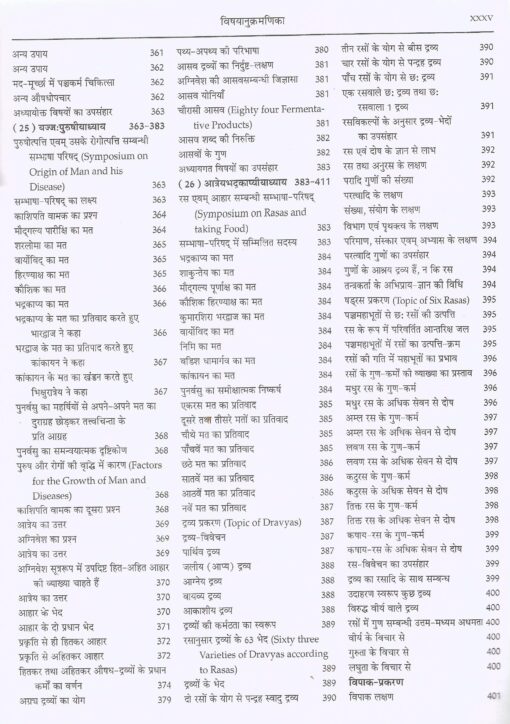 विषयानुक्रमणिका
XXXV
अन्य उपाय 361
अन्य उपाय 362
मद-मूर्च्छा में पञ्चकर्म चिकित्सा 362
अन्य औषधोपचार 362
अध्यायोक्त विषयों का उपसंहार 363
(25) यज्जःपुरुषीयाध्याय 363-383
पुरुषोत्पत्ति एवम् उसके रोगोत्पत्ति सम्बन्धी
सम्भाषा परिषद् (Symposium on
Origin of Man and his
Disease) 363
सम्भाषा-परिषद् का लक्ष्य 363
काशिपति वामक का प्रश्न 364
मौद्गल्य पारीक्षि का मत 364
शरलोमा का मत 365
वार्योविद का मत 365
हिरण्याक्ष का मत 365
कौशिक का मत 366
भद्रकाप्य का मत 366
भद्रकाप्य के मत का प्रतिवाद करते हुए
भारद्वाज ने कहा 366
भरद्वाज के मत का प्रतिपाद करते हुए
कांकायन ने कहा 367
कांकायन के मत का खंडन करते हुए
भिक्षुरात्रेय ने कहा 367
पुनर्वसु का महर्षियों से अपने-अपने मत का
दुराग्रह छोड़कर तत्त्वचिन्ता के
प्रति आग्रह 368
पुनर्वसु का समन्वयात्मक दृष्टिकोण 368
पुरुष और रोगों की वृद्धि में कारण (Factors
for the Growth of Man and
Diseases) 368
काशिपति वामक का दूसरा प्रश्न 368
आत्रेय का उत्तर 369
अग्निवेश का प्रश्न 369
आत्रेय का उत्तर 369
अग्निवेश सूत्ररूप में उपदिष्ट हित-अहित आहार
की व्याख्या चाहते हैं 370
आत्रेय का उत्तर 370
आहार के भेद 370
आहार के दो प्रधान भेद 371
प्रकृति से ही हितकर आहार 372
प्रकृति से अहितकर आहार 372
हितकर तथा अहितकर औषध-द्रव्यों के प्रधान
कर्मों का वर्णन 374
अग्रय द्रव्यों का योग 379
पथ्य-अपथ्य की परिभाषा 380
आसव द्रव्यों का निर्दुष्ट-लक्षण 381
अग्निवेश की आसवसम्बन्धी जिज्ञासा 381
आसव योनियाँ 381
चौरासी आसव (Eighty four Fermenta-
tive Products) 381
आसव शब्द की निरुक्ति 382
आसवों के गुण 382
अध्यायगत विषयों का उपसंहार 383
(26) आत्रेयभद्रकाप्यीयाध्याय 383-411
रस एवम् आहार सम्बन्धी सम्भाषा-परिषद्
(Symposium on Rasas and
taking Food) 383
सम्भाषा-परिषद् में सम्मिलित सदस्य 383
भद्रकाप्य का मत 384
शाकुन्तेय का मत 384
मौद्गल्य पूर्णाक्ष का मत 384
कौशिक हिरण्याक्ष का मत 384
कुमारशिरा भरद्वाज का मत 384
वार्योविद का मत 384
निमि का मत 384
बडिश धामार्गव का मत 384
कांकायन का मत 384
पुनर्वसु का समीक्षात्मक निष्कर्ष 384
एकरस मत का प्रतिवाद 385
दूसरे तथा तीसरे मतों का प्रतिवाद 385
चौथे मत का प्रतिवाद 385
पाँचवें मत का प्रतिवाद 385
छठे मत का प्रतिवाद 385
सातवें मत का प्रतिवाद 385
आठवें मत का प्रतिवाद 385
नवें मत का प्रतिवाद 385
द्रव्य प्रकरण (Topic of Dravyas) 387
द्रव्य-विवेचन 387
पार्थिव द्रव्य 387
जलीय (आप्य) द्रव्य 387
आग्नेय द्रव्य 387
वायव्य द्रव्य 387
आकाशीय द्रव्य 387
द्रव्यों की कर्मठता का स्वरूप 389
रसानुसार द्रव्यों के 63 भेद (Sixty three
Varieties of Dravyas according
to Rasas) 389
द्रव्यों के भेद 389
दो रसों के योग से पन्द्रह स्वादु द्रव्य 390
तीन रसों के योग से बीस द्रव्य 390
चार रसों के योग से पन्द्रह द्रव्य 390
पाँच रसों के योग से छः द्रव्य 391
एक रसवाले छः द्रव्य तथा छः
रसवाला 1 द्रव्य 391
रसविकल्पों के अनुसार द्रव्य-भेदों
का उपसंहार 391
रस एवं दोष के ज्ञान से लाभ 392
रस तथा अनुरस के लक्षण 392
परादि गुणों की संख्या 392
परत्वादि के लक्षण 393
संख्या, संयोग के लक्षण 393
विभाग एवं पृथक्त्व के लक्षण 393
परिमाण, संस्कार एवम् अभ्यास के लक्षण 394
परत्वादि गुणों का उपसंहार 394
गुणों के आश्रय द्रव्य हैं, न कि रस 394
तन्त्रकर्ता के अभिप्राय-ज्ञान की विधि 394
षड्रस प्रकरण (Topic of Six Rasas) 395
पञ्चमहाभूतों से छः रसों की उत्पत्ति 395
रस के रूप में परिवर्तित आन्तरिक्ष जल 395
पञ्चमहाभूतों में रसों का उत्पत्ति-क्रम 395
रसों की गति में महाभूतों का प्रभाव 396
रसों के गुण-कर्मों की व्याख्या का प्रस्ताव 396
मधुर रस के गुण-कर्म 396
मधुर रस के अधिक सेवन से दोष 396
अम्ल रस के गुण-कर्म 397
अम्ल रस के अधिक सेवन से दोष 397
लवण रस के गुण-कर्म 397
लवण रस के अधिक सेवन से दोष 397
कटुरस के गुण-कर्म 398
कटुरस के अधिक सेवन से दोष 398
तिक्त रस के गुण-कर्म 398
तिक्त रस के अधिक सेवन से दोष 398
कषाय-रस के गुण-कर्म 399
कषाय-रस के अधिक सेवन से दोष 399
रस-विवेचन का उपसंहार 399
द्रव्य का रसादि के साथ सम्बन्ध 399
उदाहरण स्वरूप कुछ द्रव्य 400
विरुद्ध वीर्य वाले द्रव्य 400
रसों में गुण सम्बन्धी उत्तम-मध्यम अधमता 400
वीर्य के विचार से 400
गुरुता के विचार से 400
लघुता के विचार से 400
विपाक-प्रकरण
विपाक लक्षण 401